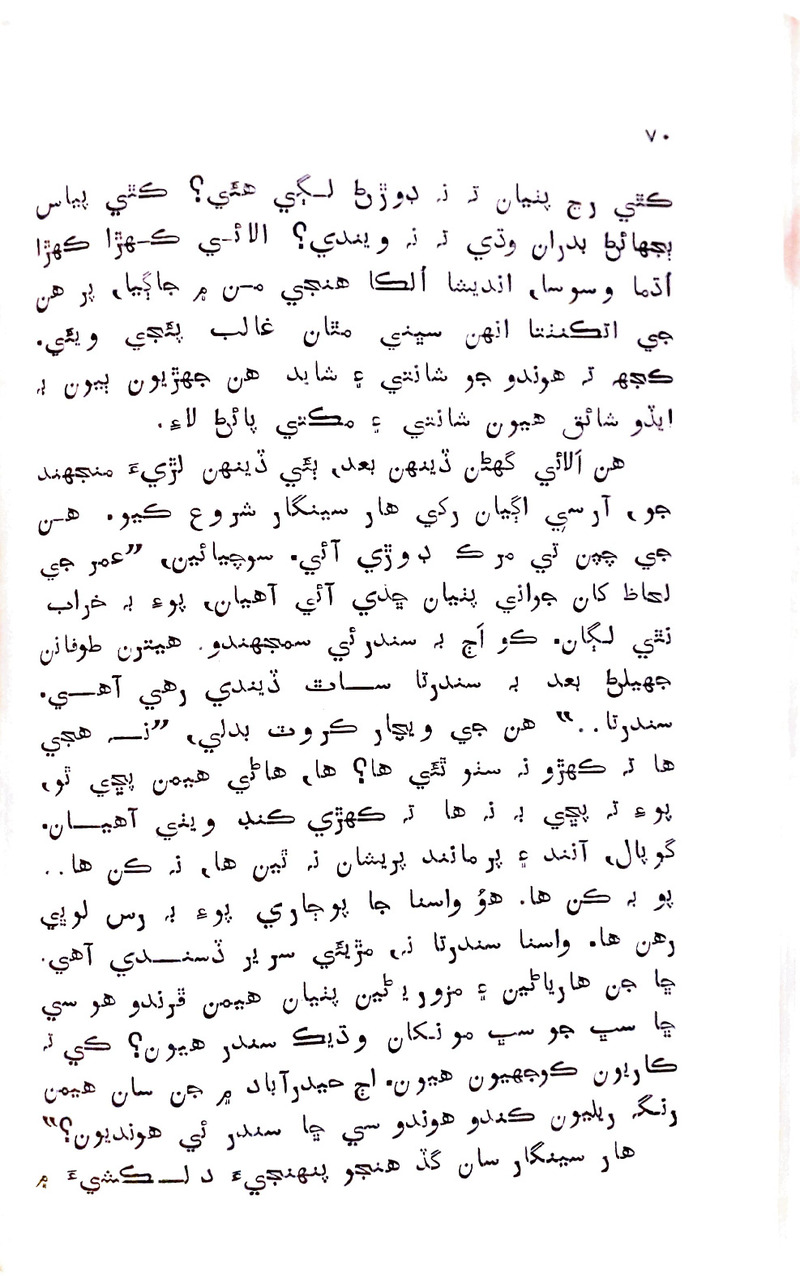 ٧٠
ڪٿي رڃ پٺيان تہ نہ ڊوڙڻ لڳي هئي؟ ڪٿي پياس
ٻجهائڻ بدران وڌي تہ نہ ويندي؟ الائي ڪهڙا ڪهڙا
اُڌما وسوسا، انديشا اُلڪا هنجي من ۾ جاڳيا، پر هن
جي اتڪنٺتا انهن سڀني مٿان غالب پئجي ويئي.
ڪجهہ تہ هوندو جو شانتي ۽ شايد هن جهڙيون ٻيون بہ
ايڏو شائق هيون شانتي ۽ مڪتي پائڻ لاءِ.
هن اَلائي گهڻن ڏينهن بعد، ٻئي ڏينهن لڙيءَ منجهند
جو، آرسي اڳيان رکي هار سينگار شروع ڪيو. هن
جي چپن تي مرڪ ڊوڙي آئي. سوچيائين، ”عمر جي
لحاظ کان جواني پٺيان ڇڏي آئي آهيان، پوءِ بہ خراب
نٿي لڳان. ڪو اڄ بہ سندر ئي سمجهندو. هيترن طوفانن
جهيلڻ بعد بہ سندرتا ساٿ ڏيندي رهي آهي.
سندرتا..“ هن جي ويچار ڪروٽ بدلي، ”نہ هجي
ها تہ ڪهڙو نہ سٺو ٿئي ها؟ ها، هاڻي هيمن پڇي ٿو،
پوءِ تہ پڇي بہ نہ ها تہ ڪهڙي ڪنڊ ويٺي آهيان.
گوپال، آنند ۽ پرمانند پريشان نہ ٿين ها، نہ ڪن ها..
پو بہ ڪن ها. هوُ واسنا جا پوڄاري پوءِ بہ رس لوڀي
رهن ها. واسنا سندرتا نہ، مڙيئي سرير ڏسندي آهي.
ڇا جن هارياڻين ۽ مزورياڻين پٺيان هيمن ڦرندو هو سي
ڇا سڀ جو سڀ مونکان وڌيڪ سندر هيون؟ ڪي تہ
ڪاريون ڪوجهيون هيون. اڄ حيدرآباد ۾ جن سان هيمن
رنگ رليون ڪندو هوندو سي ڇا سندر ئي هونديون؟“
هار سينگار سان گڏ هنجو پنهنجيءَ دلڪشيءَ ۾